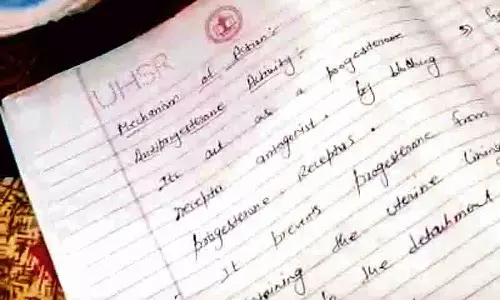 UHSR
Mechanism of Action:-
Antiprogesterone Activity:-
It act as a progesterone
receptor antagonist. By blocking
progesterone receptors.
It prevents progesterone from
the uterine lining
the detachment
5)